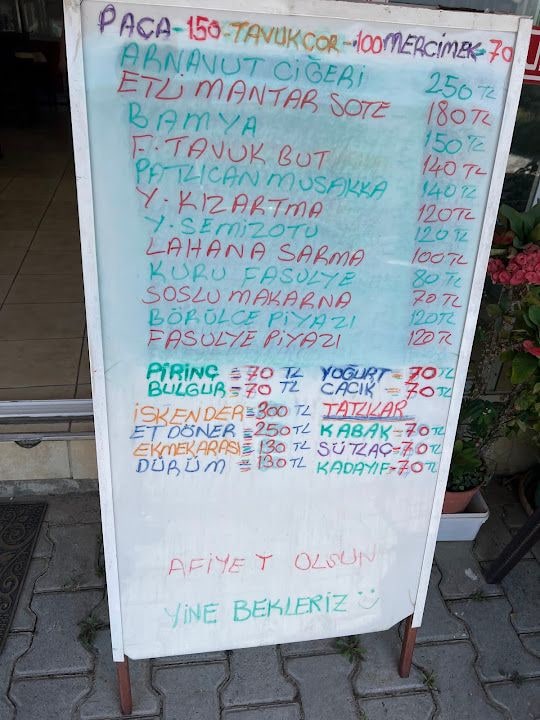 PAÇA-150-TAVUKÇOR-100 MERCİMEK-70
ARNAVUT CİĞERİ 250 TL
ETLİ MANTAR SOTE 180 TL
BAMYA 150 TL
F. TAVUK BUT 140 TL
PATLICAN MUSAKKA 140 TL
Y. KIZARTMA 120 TL
Y. SEMİZOTU 120 TL
LAHANA SARMA 100 TL
KURU FASULYE 80 TL
SOSLU MAKARNA 70 TL
BÖRÜLCE PİYAZI 120 TL
FASULYE PİYAZI 120 TL
PİRİNÇ = 70 TL YOĞURT = 70 TL
BULGUR = 70 TL CACIK = 70 TL
İSKENDER = 300 TL TATLILAR
ET DÖNER = 250 TL KABAK = 70 TL
EKMEKARASI = 130 TL SÜTLAÇ = 70 TL
DÜRÜM = 130 TL KADAYIF = 70 TL
AFİYET OLSUN
YİNE BEKLERİZ